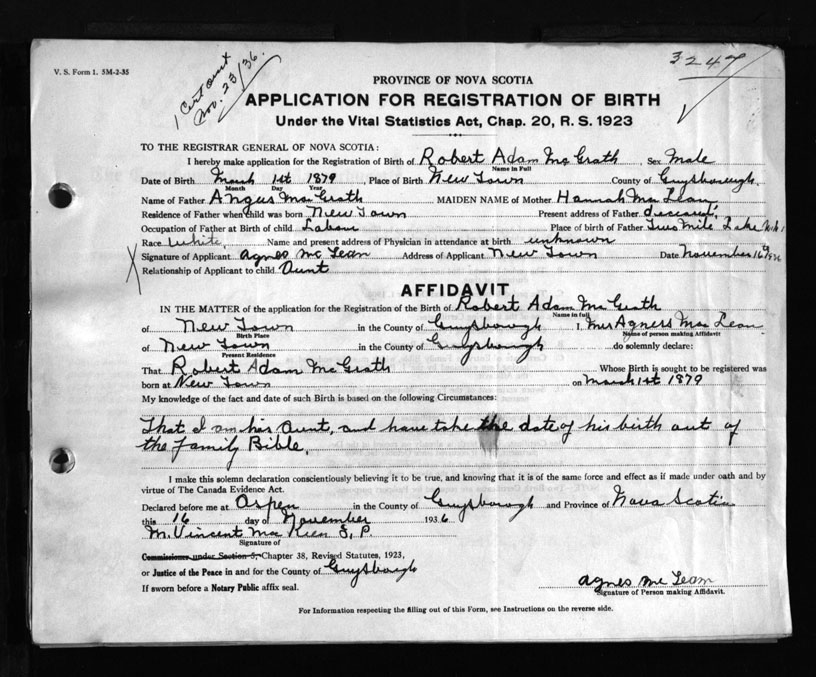 3247
V. S. Form 1. 5M-2-35
1 Cert out
Nov. 23/36.
PROVINCE OF NOVA SCOTIA
APPLICATION FOR REGISTRATION OF BIRTH
Under the Vital Statistics Act, Chap. 20, R. S. 1923
TO THE REGISTRAR GENERAL OF NOVA SCOTIA:
I hereby make application for the Registration of Birth of Robert Adam McGrath Sex Male
Name in Full
Date of Birth March 1st 1879 Place of Birth New Town County of Guysborough.
Month Day Year
Name of Father Angus MacGrath MAIDEN NAME of Mother Hannah MacLean
Residence of Father when child was born New Town Present address of Father deceased,
Occupation of Father at Birth of child Labour Place of birth of Father Two Mile Lake
Race White, Name and present address of Physician in attendance at birth unknown
Signature of Applicant Agnes McLean Address of Applicant New Town Date November 16
X Relationship of Applicant to child Aunt
AFFIDAVIT
IN THE MATTER of the application for the Registration of the Birth of Robert Adam McGrath
Name in full
of New Town in the County of Guysborough I, Mrs Agness MacLean
Birth Place Name of person making Affidavit
of New Town in the County of Guysborough do solemnly declare:
Present Residence
That Robert Adam McGrath Whose Birth is sought to be registered was
born at New Town on March 1st 1879
My knowledge of the fact and date of such Birth is based on the following Circumstances:
That I am his Aunt, and have take the date of his birth out of
the family Bible.
I make this solemn declaration conscientiously believing it to be true, and knowing that it is of the same force and effect as if made under oath and by
virtue of The Canada Evidence Act.
Declared before me at Aspen in the County of Guysborough and Province of Nova Scotia
this 16 day of November 1936.
M. Vincent MacKeen J. P.
Signature of
Commissioner under Section 5, Chapter 38, Revised Statutes, 1923,
or Justice of the Peace in and for the County of Guysborough
If sworn before a Notary Public affix seal.
Agnes McLean
Signature of Person making Affidavit.
For Information respecting the filling out of this Form, see Instructions on the reverse side.